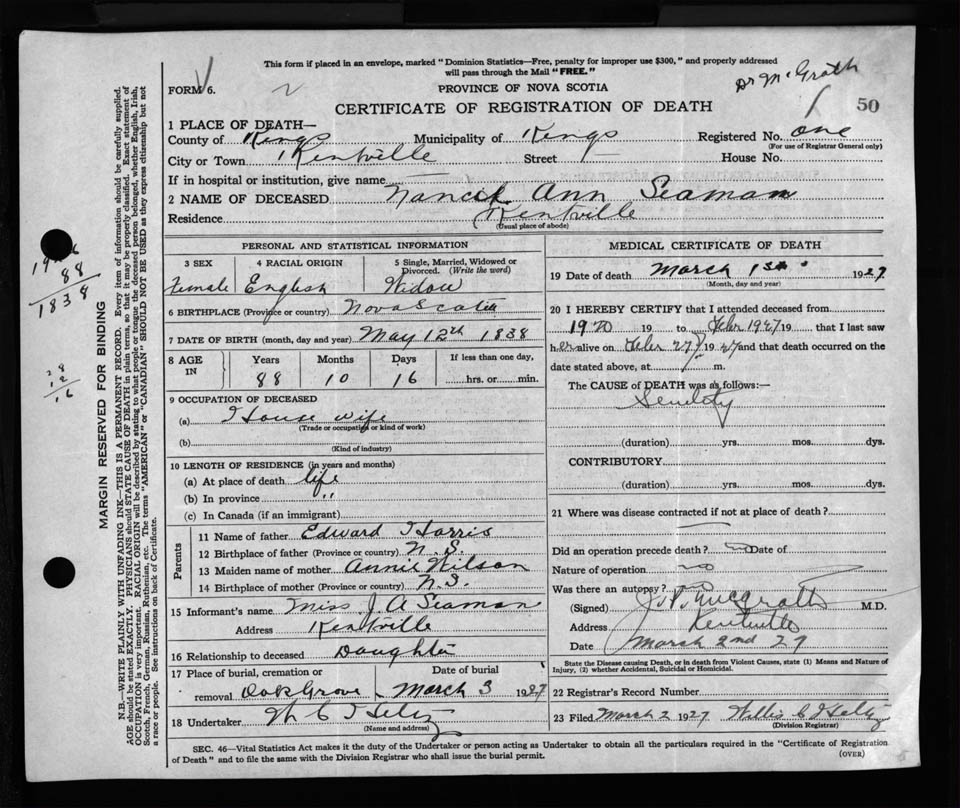 This form if placed in an envelope, marked "Dominion Statistics—Free, penalty for improper use $300," and properly addressed
will pass through the Mail "FREE."
Dr McGrath
FORM 6.
2
PROVINCE OF NOVA SCOTIA
50
CERTIFICATE OF REGISTRATION OF DEATH
1 PLACE OF DEATH—
County of Kings Municipality of Kings Registered No. one
(For use of Registrar General only)
City or Town Kentville Street — House No.
If in hospital or institution, give name —
2 NAME OF DECEASED Ann Seaman
Residence Kentville
(Usual place of abode)
PERSONAL AND STATISTICAL INFORMATION
3 SEX 4 RACIAL ORIGIN 5 Single, Married, Widowed or
Divorced. (Write the word)
Female English Widow
6 BIRTHPLACE (Province or country) Nova Scotia
7 DATE OF BIRTH (month, day and year) May 12th 1838
8 AGE IN Years Months Days If less than one day,
88 10 16 hrs. or min.
9 OCCUPATION OF DECEASED
(a) House wife
(Trade or occupation or kind of work)
(b)
(Kind of industry)
10 LENGTH OF RESIDENCE (in years and months)
(a) At place of death life
(b) In province "
(c) In Canada (if an immigrant)
Parents
11 Name of father Edward Harris
12 Birthplace of father (Province or country) N. S.
13 Maiden name of mother Annie Wilson
14 Birthplace of mother (Province or country) N.S.
15 Informant's name Miss J. A Seaman
Address Kentville
16 Relationship to deceased Daughter
17 Place of burial, cremation or Date of burial
removal Oak Grove March 3 1927
18 Undertaker W C
(Name and address)
MEDICAL CERTIFICATE OF DEATH
19 Date of death March 1st 1927
(Month, day and year)
20 I HEREBY CERTIFY that I attended deceased from
1920 19 to Feb 1927 19 that I last saw
her alive on Feb 27 1927 and that death occurred on the
date stated above, at m.
The CAUSE of DEATH was as follows:—
Senility
(duration) yrs. mos. dys.
CONTRIBUTORY
(duration) yrs. mos. dys.
21 Where was disease contracted if not at place of death?
Did an operation precede death? no Date of
Nature of operation no
Was there an autopsy? no
(Signed) McGrath M.D.
Address Kentville
Date March 2nd 29
State the Disease causing Death, or in death from Violent Causes, state (1) Means and Nature of
Injury, (2) whether Accidental, Suicidal or Homicidal.
22 Registrar's Record Number
23 Filed March 2 1927 Willis C
(Division Registrar)
SEC. 46—Vital Statistics Act makes it the duty of the Undertaker or person acting as Undertaker to obtain all the particulars required in the "Certificate of Registration
of Death" and to file the same with the Division Registrar who shall issue the burial permit.
(OVER)
MARGIN RESERVED FOR BINDING
N.B.—WRITE PLAINLY WITH UNFADING INK—THIS IS A PERMANENT RECORD. Every item of information should be carefully supplied.
AGE should be stated EXACTLY. PHYSICIANS should STATE CAUSE OF DEATH in plain terms, so that it may be properly classified. Exact statement of
OCCUPATION is very important. RACIAL ORIGIN will be described by stating to what people or tongue the deceased person belonged, whether English, Irish,
Scotch, French, German, Russian, Ruthenian, etc. The terms "AMERICAN" or "CANADIAN" SHOULD NOT BE USED as they express citizenship but not
a race or people. See instructions on back of Certificate.
88
1838
28
12
16